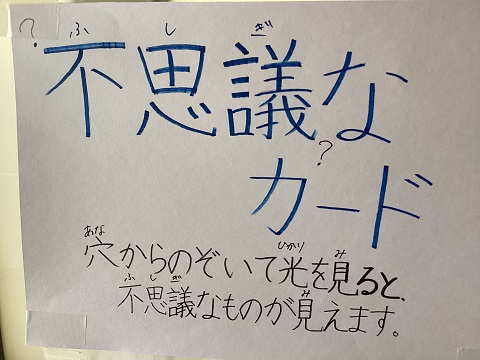 ? ふ し ぎ
不思議な
?
カード
あな ひかり み
穴からのぞいて光を見ると、
ふ し ぎ み
不思議なものが見えます。